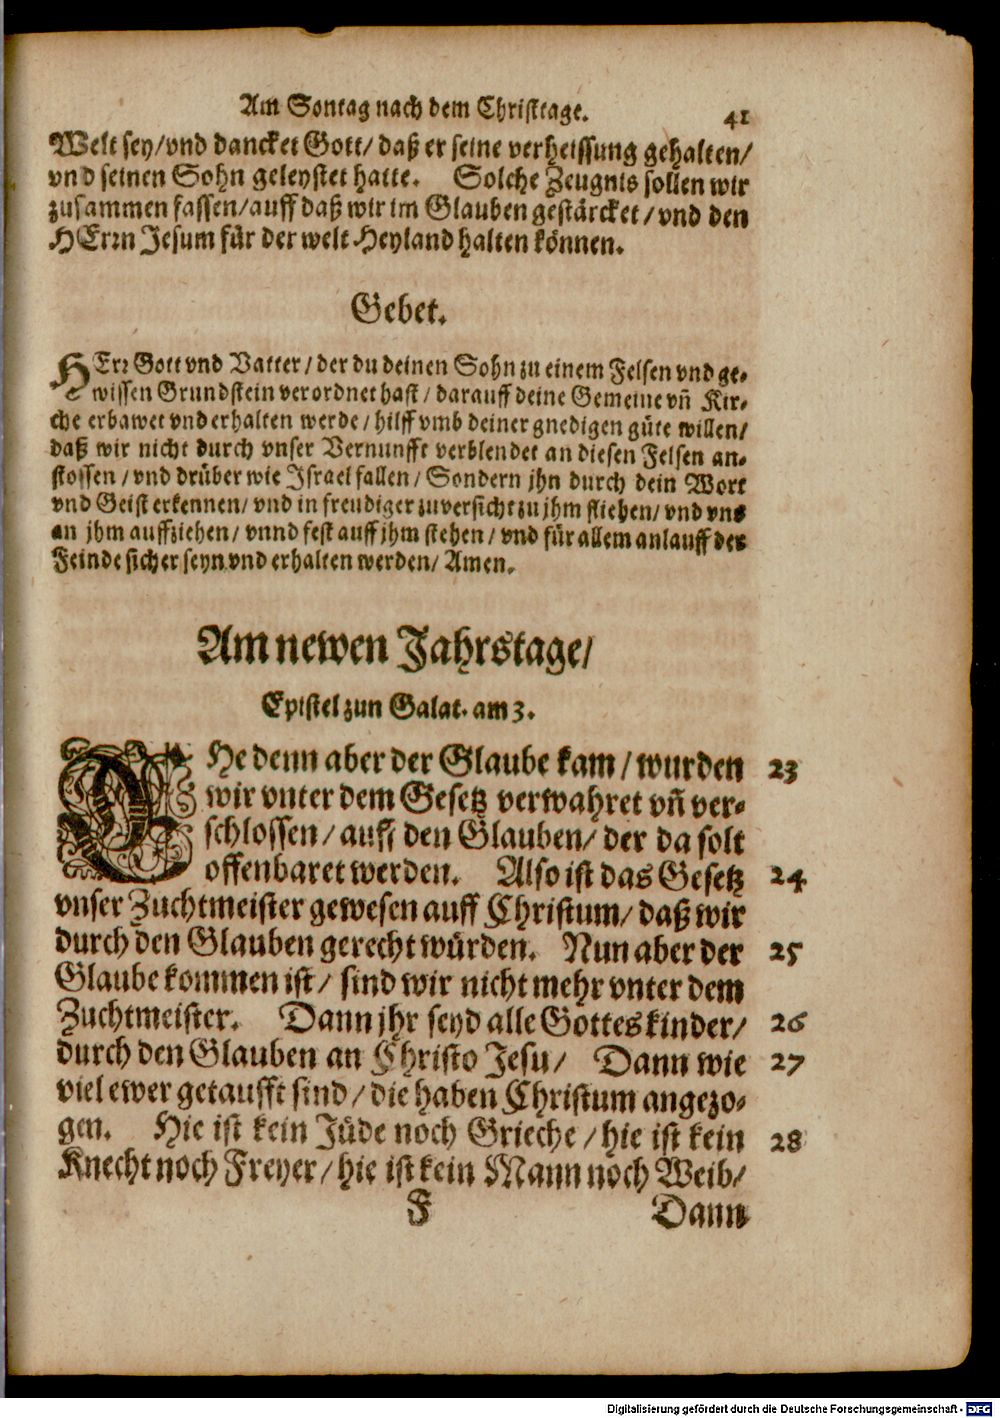 Am Sontag nach dem Christtage. 41
Welt sey/vnd dancket Gott/ daß er seine verheissung gehalten/
vnd seinen Sohn geleystet hatte. Solche Zeugnis sollen wir
zusammen fassen/auff daß wir im Glauben gestärcket/vnd den
HErrn Jesum für der welt Heyland halten können.
Gebet.
HErr Gott vnd Vatter/der du deinen Sohn zu einem Felsen vnd ge-
wissen Grundstein verordnet hast/darauff deine Gemeine vñ Kir-
che erbawet vnd erhalten werde/hilff vmb deiner gnedigen güte willen/
daß wir nicht durch vnser Vernunfft verblendet an diesen Felsen an-
stossen/vnd drüber wie Israel fallen/Sondern jhn durch dein Wort
vnd Geist erkennen/vnd in freudiger zuversicht zu jhm fliehen/vnd vns
an jhm auffziehen/vnnd fest auff jhm stehen/vnd für allem anlauff der
Feinde sicher seyn vnd erhalten werden/Amen.
Am newen Jahrstage/
Epistel zun Galat. am 3.
EHe denn aber der Glaube kam/wurden 23
wir vnter dem Gesetz verwahret vñ ver-
schlossen/auff den Glauben/der da solt
offenbaret werden. Also ist das Gesetz 24
vnser Zuchtmeister gewesen auff Christum/daß wir
durch den Glauben gerecht würden. Nun aber der 25
Glaube kommen ist/sind wir nicht mehr vnter dem
Zuchtmeister. Dann jhr seyd alle Gottes kinder/ 26
durch den Glauben an Christo Jesu/ Dann wie 27
viel ewer getaufft sind/die haben Christum angezo-
gen. Hie ist kein Jüde noch Grieche/hie ist kein 28
Knecht noch Freyer/hie ist kein Mann noch Weib/
F Dann
Digitalisierung gefördert durch die Deutsche Forschungsgemeinschaft - DFG